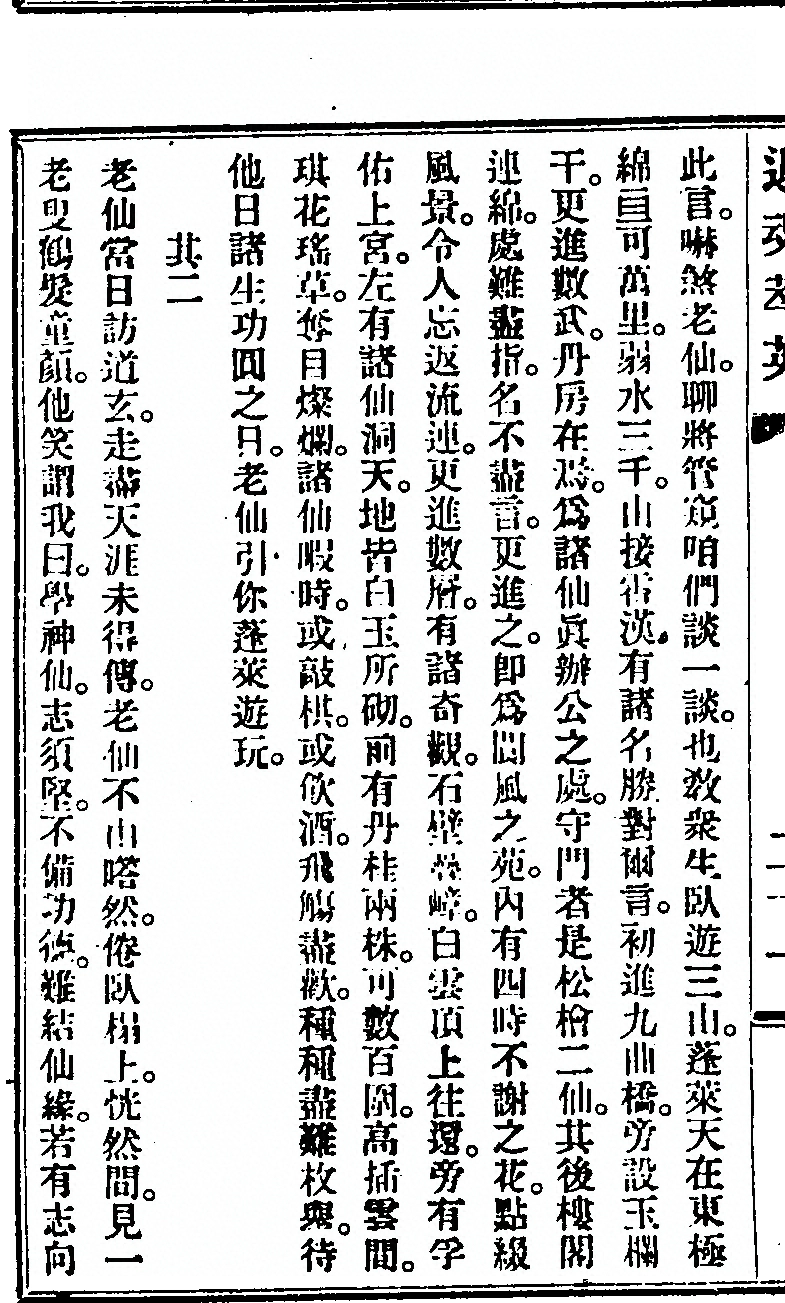 此言。嚇煞老仙。聊將管窺咱們談一談。也敎衆生臥遊三山。蓬萊天在東極
綿亘可萬里。弱水三千。山接雲漢。有諸名勝對爾言。初進九曲橋。旁設玉欄
干。更進數武。丹房在焉。爲諸仙眞辦公之處。守門者是松檜二仙。其後樓閣
連綿。處難盡指。名不盡言。更進之。卽爲閬風之苑。內有四時不謝之花。點綴
風景。令人忘返流連。更進數層。有諸奇觀。石壁叠嶂。白雲頂上往還。旁有孚
佑上宮。左有諸仙洞天。地皆白玉所砌。前有丹桂兩株。可數百圍。高插雲間。
琪花瑤草。奪目燦爛。諸仙暇時。或敲棋。或飮酒。飛觴盡歡。種種盡難枚舉。待
他日諸生功圓之日。老仙引你蓬萊遊玩。
其二
老仙當日訪道玄。走盡天涯未得傳。老仙不由嗒然。倦臥榻上。恍然間。見一
老叟鶴髮童顏。他笑謂我曰。學神仙。志須堅。不備功德。難結仙緣。若有志向